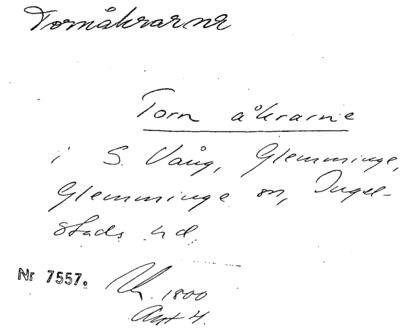 Tornåkrarne
Torn åkrarne
i S. Vång, Glemminge,
Glemminge sn, Ingel-
stads hd.
Nr 7557.
1800
Akt 4.